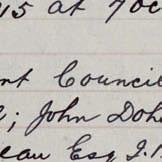 15 at 7 oc
nt Council
; John Doh
eau Esq J.